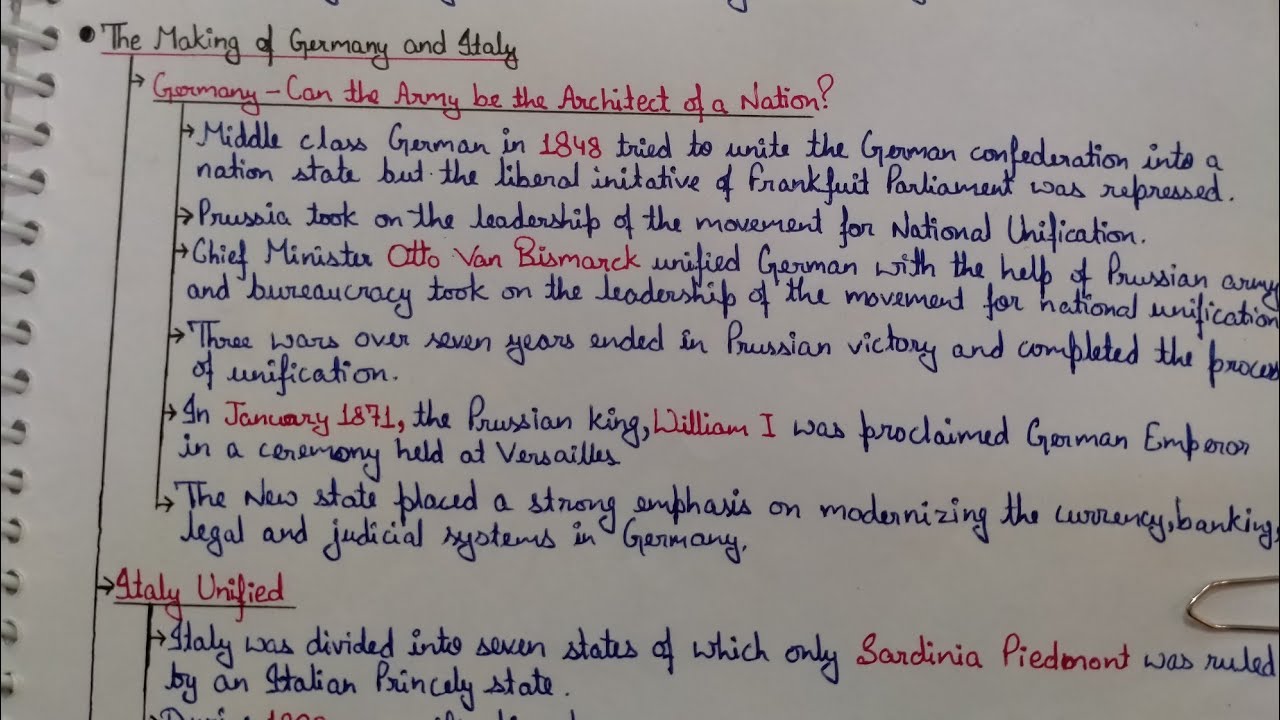 • The Making of Germany and Italy
→ Germany - Can the Army be the Architect of a Nation?
→ Middle class German in 1848 tried to unite the German confederation into a
nation state but the liberal initative of Frankfuit Parliament was repressed.
→ Prussia took on the leadership of the movement for National Unification.
→ Chief Minister Otto Van Bismarck unified German with the help of Prussian army
and bureaucracy took on the leadership of the movement for national unification
→ Three wars over seven years ended in Prussian victory and completed the process
of unification.
→ In January 1871, the Prussian king, William I was proclaimed German Emperor
in a ceremony held at Versailles
→ The New state placed a strong emphasis on modernizing the currency, banking,
legal and judicial systems in Germany.
→ Italy Unified
→ Italy was divided into seven states of which only Sardinia Piedmont was ruled
by an Italian Princely state.